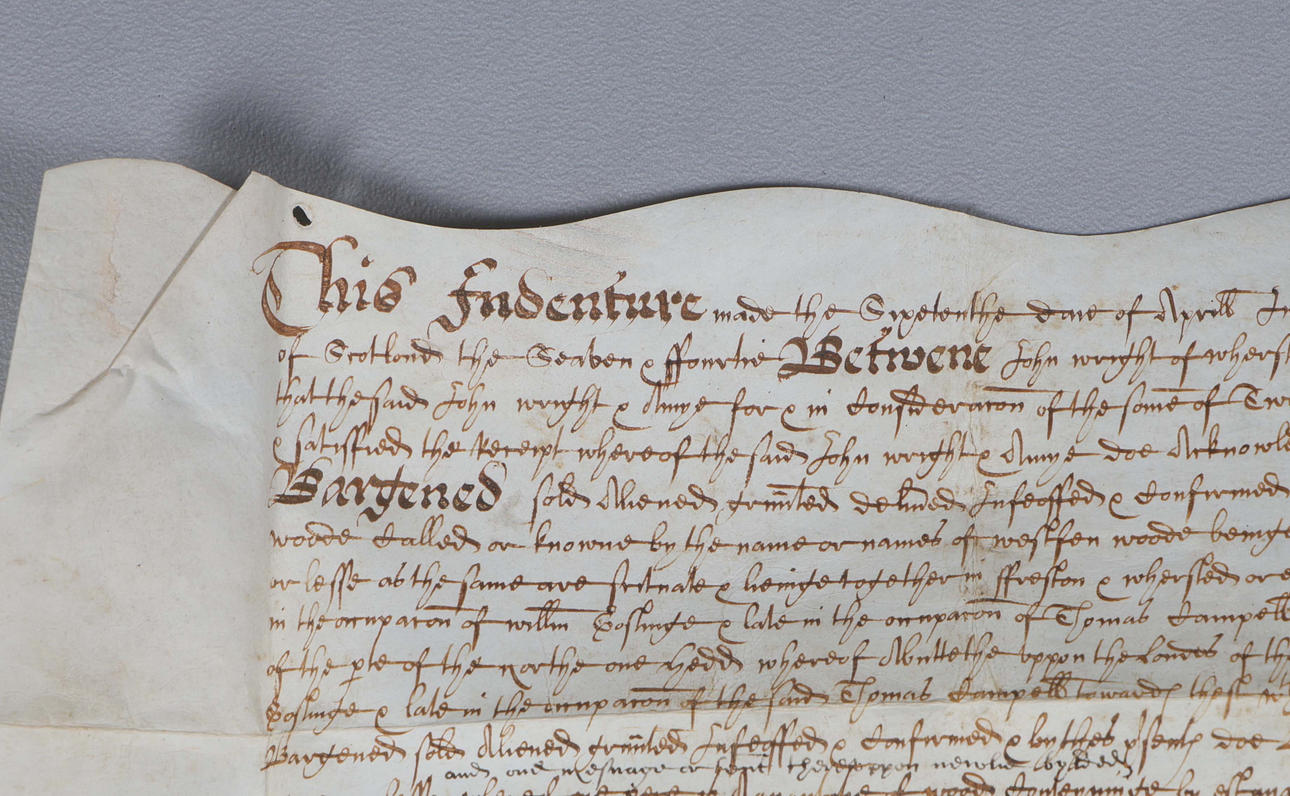 This Indenture made the Sixetenthe daie of Aprill In
of Scotland the Seaven & ffourtie Betwene John wright of wherst
that the said John wright & Amye for & in Consideracon of the some of Twe
& satisfied the Receipt whereof the said John wright & Amye doe Acknowle
Bargened sold Aliened graunted delivred Infeoffed & Confirmed
woode Called or knowne by the name or names of westfen woode beinge
or lesse as the same are scituate & lieinge together in ffreston & whersted
in the occupacon of willm Goslinge & late in the occupacon of Thomas Campell
of the pte of the northe one Hedd whereof Abuttethe uppon the Landes of the
Goslinge & late in the occupacon of the said Thomas Campell towardes the
Bargened sold Aliened graunted Infeoffed & Confirmed & by thes psents doe
and one mesuage or tent thereuppon newlie buylded